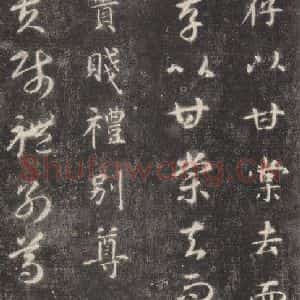 存以甘棠去而
存以甘棠去而
貴賤禮別尊
貴賤禮別尊
Shufawang.CN